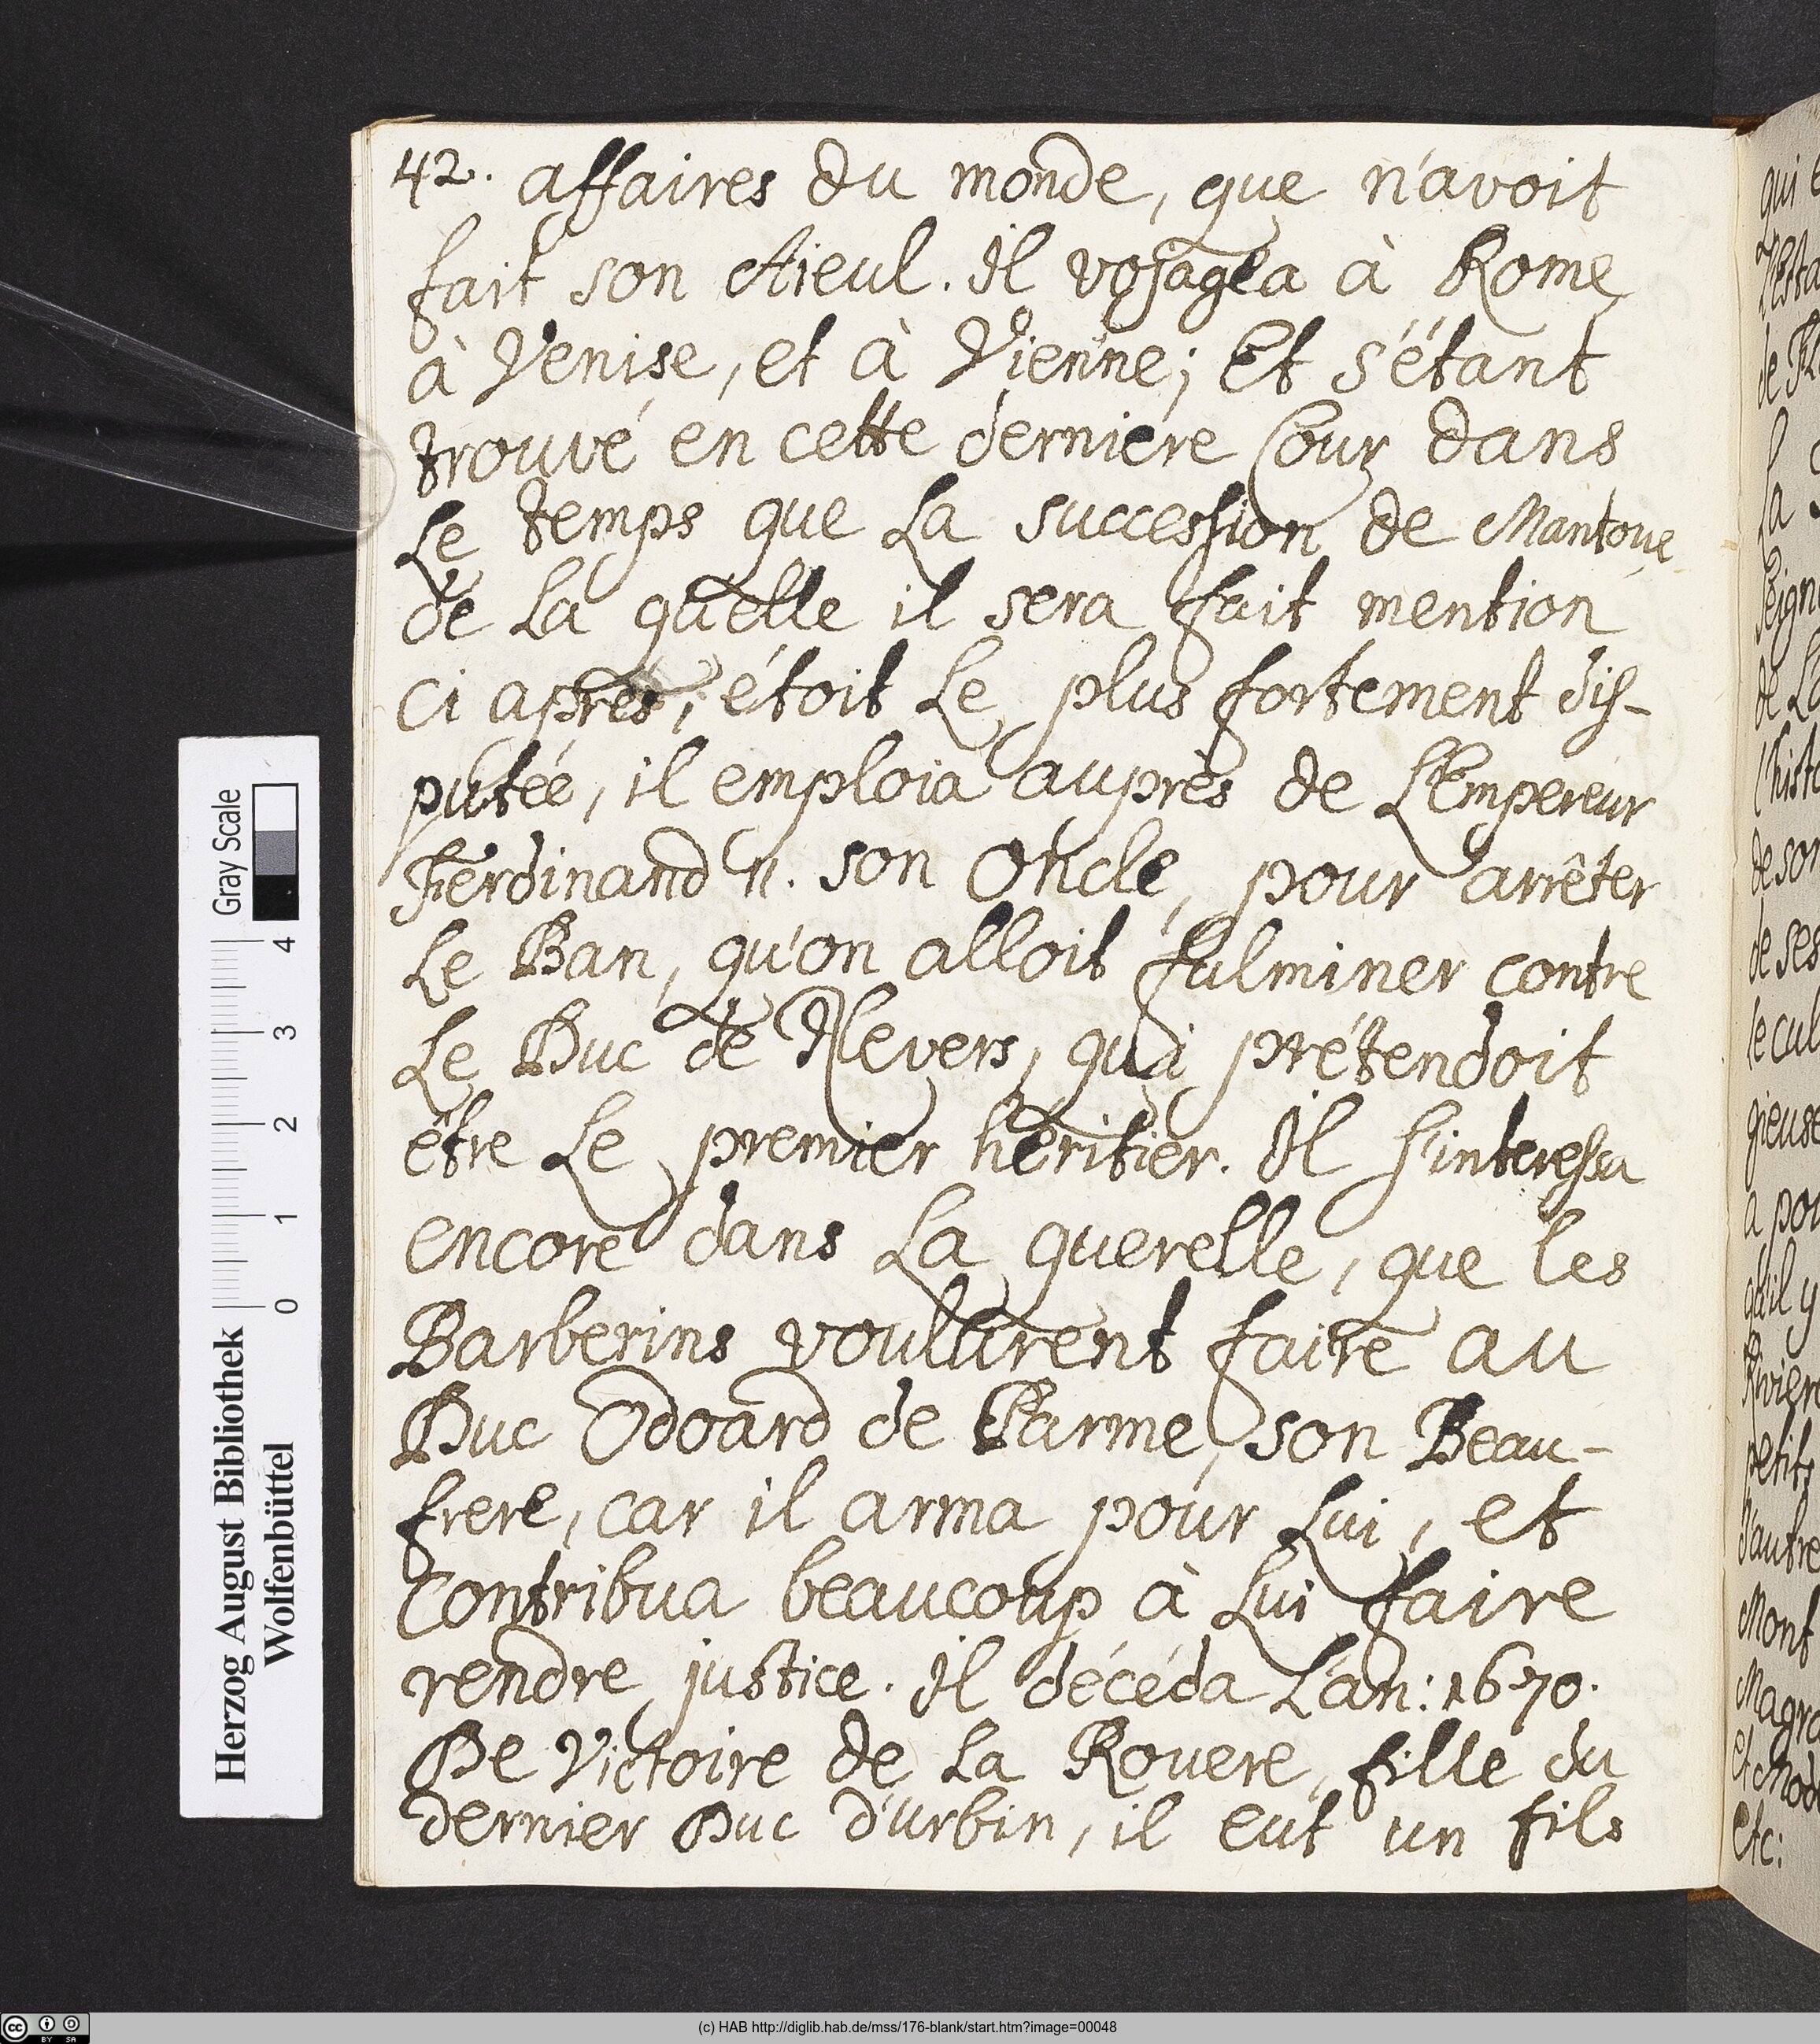 42. affaires du monde, que n'avoit
fait son Aieul. Il vojagea à Rome,
à Venise, et à Vienne; Et s'étant
trouvé en cette derniére Cour dans
Le temps que La succession de Mantoue,
de La quelle il sera fait mention
ci aprés, étoit Le plus fortement dis-
putée, il emploia auprès de L'Empereur
Ferdinand II. son Oncle, pour arrêter
Le Ban, qu'on alloit fulminer contre
Le Duc de Nevers, qui prétendoit
être Le premier héritier. Il s'interessa
encore dans La querelle, que les
Barberins voulurent faire au
Duc Odoard de Parme, son Beau-
frere, car il arma pour Lui, et
contribua beaucoup à Lui faire
rendre justice. Il décéda L'an: 1670.
De Victoire de La Rovere, fille du
dernier Duc d'urbin, il eut un fils
qui
de
la
de La
l'histo
de son
de ses
le cul
gieuse
a pou
qu'il y
Rivier
petits
d'autre
Mont
Magra
et Mod
etc:
Herzog August Bibliothek
Wolfenbüttel
0 1 2 3 4
Gray Scale
cc BY SA
(c) HAB http://diglib.hab.de/mss/176-blank/start.htm?image=00048